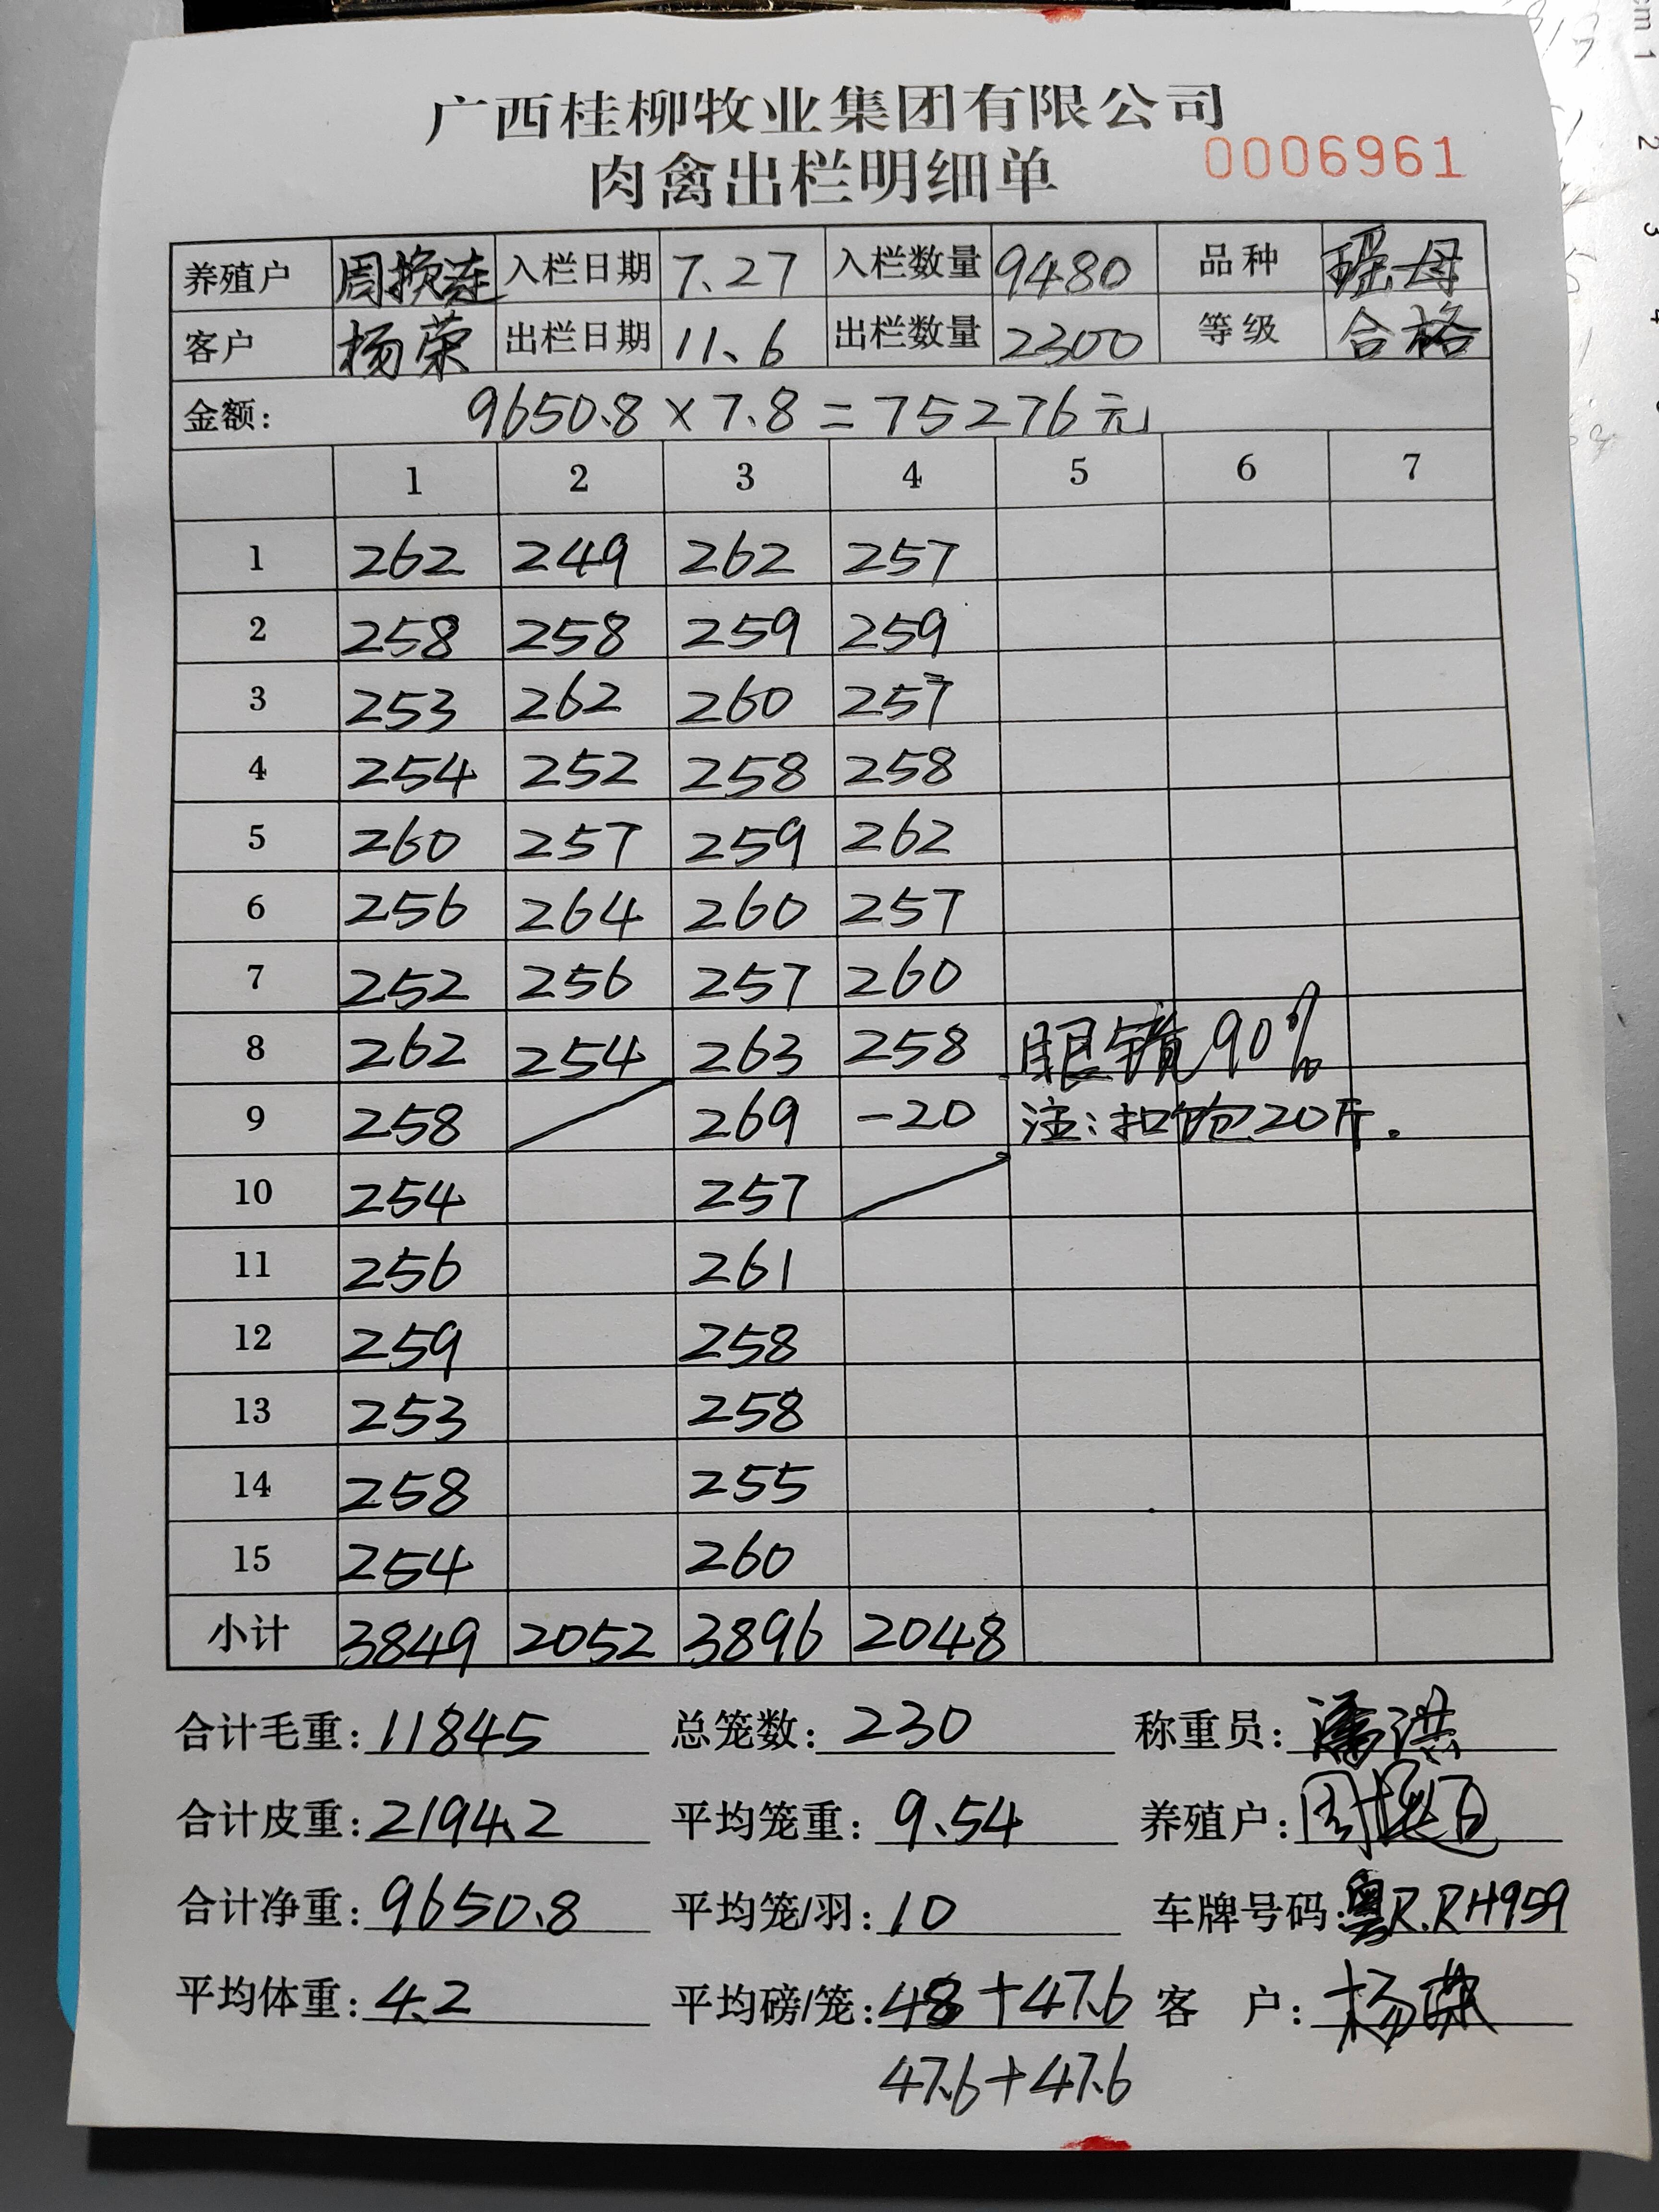 广西桂柳牧业集团有限公司
肉禽出栏明细单 0006961
养殖户 周换连 入栏日期 7.27 入栏数量 9480 品种 瑶母
客户 杨荣 出栏日期 11.6 出栏数量 2300 等级 合格
金额: 9650.8×7.8=75276元
1 2 3 4 5 6 7
1 262 249 262 257
2 258 258 259 259
3 253 262 260 257
4 254 252 258 258
5 260 257 259 262
6 256 264 260 257
7 252 256 257 260
8 262 254 263 258 眼镜90%
9 258 269 -20 注:扣饱20斤.
10 254 257
11 256 261
12 259 258
13 253 258
14 258 255
15 254 260
小计 3849 2052 3896 2048
合计毛重: 11845 总笼数: 230 称重员: 潘洪
合计皮重: 2194.2 平均笼重: 9.54 养殖户:
合计净重: 9650.8 平均笼/羽: 10 车牌号码: 粤R.RH959
平均体重: 4.2 平均磅/笼: 48+47.6 客 户: 杨荣
47.6+47.6